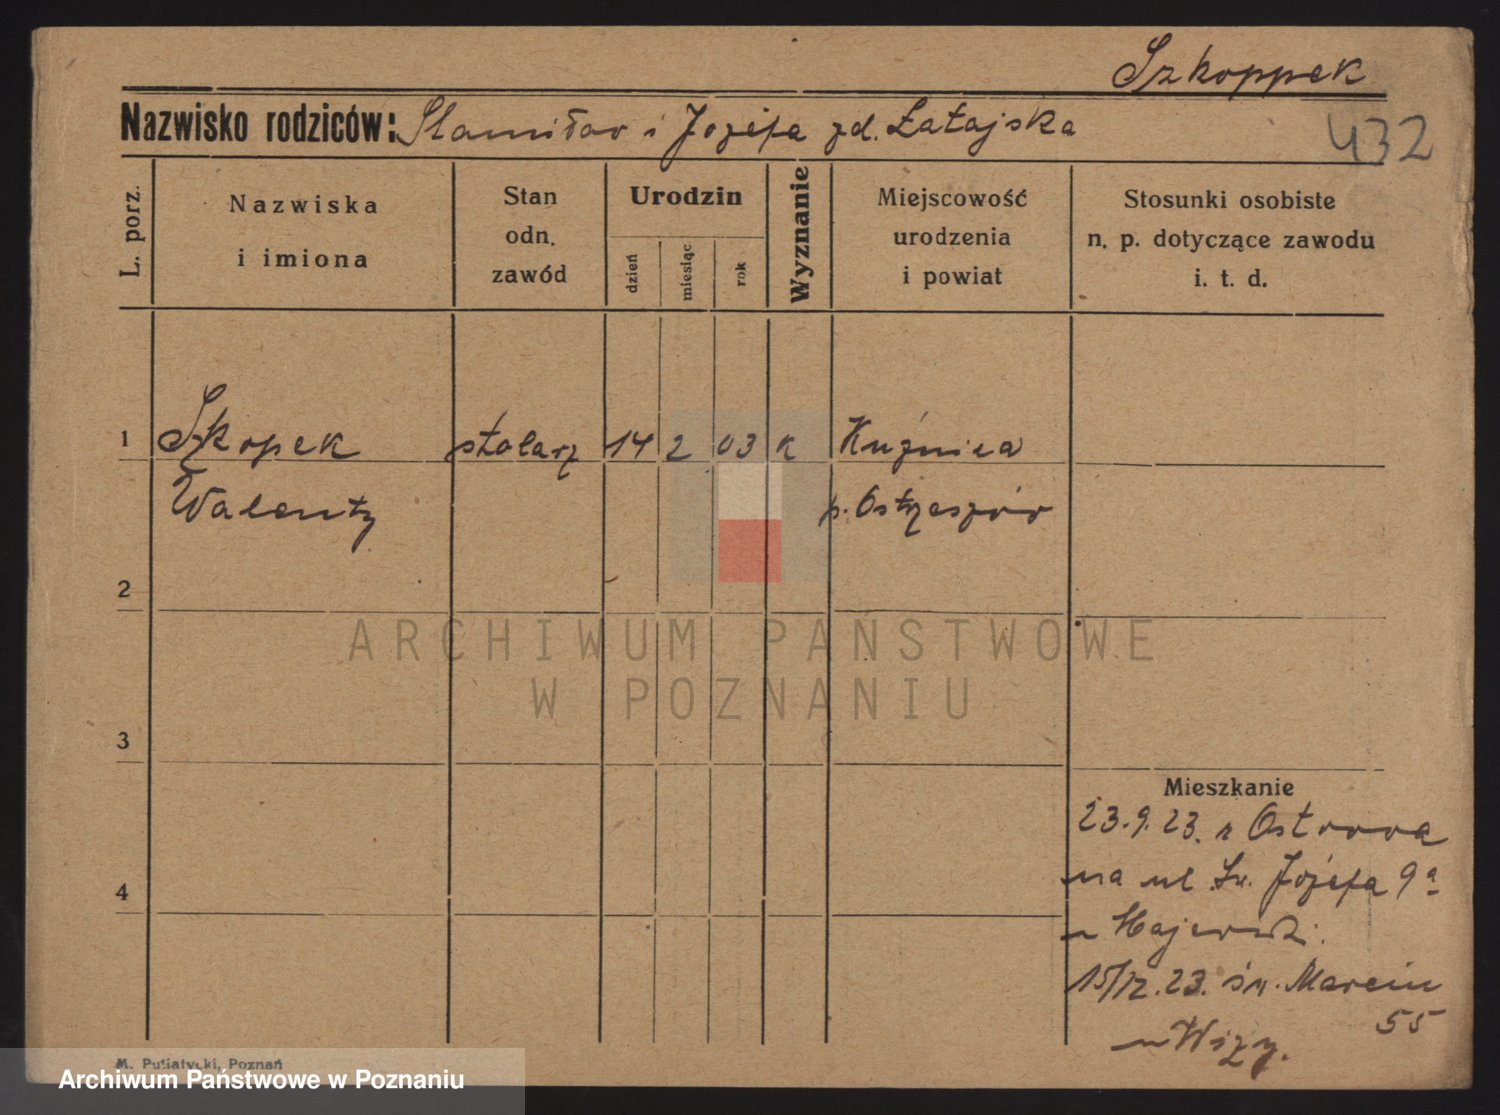 Szkoppek
Nazwisko rodziców: Stanisław i Józefa zd. Łatajska
432
L. porz.
Nazwiska
i imiona
Stan
odn.
zawód
Urodzin
dzień
miesiąc
rok
Wyznanie
Miejscowość
urodzenia
i powiat
Stosunki osobiste
n. p. dotyczące zawodu
i. t. d.
1 Szkopek stolarz 14 2 03 k Kuźnica
Walenty p. Ostrzeszów
2
3
4
Mieszkanie
23.9.23. z Ostrowa
na ul Św. Józefa 9a
u
15/12.23. św. Marcin
55
u
M. Putiatycki, Poznań
ARCHIWUM PAŃSTWOWE
W POZNANIU
Archiwum Państwowe w Poznaniu